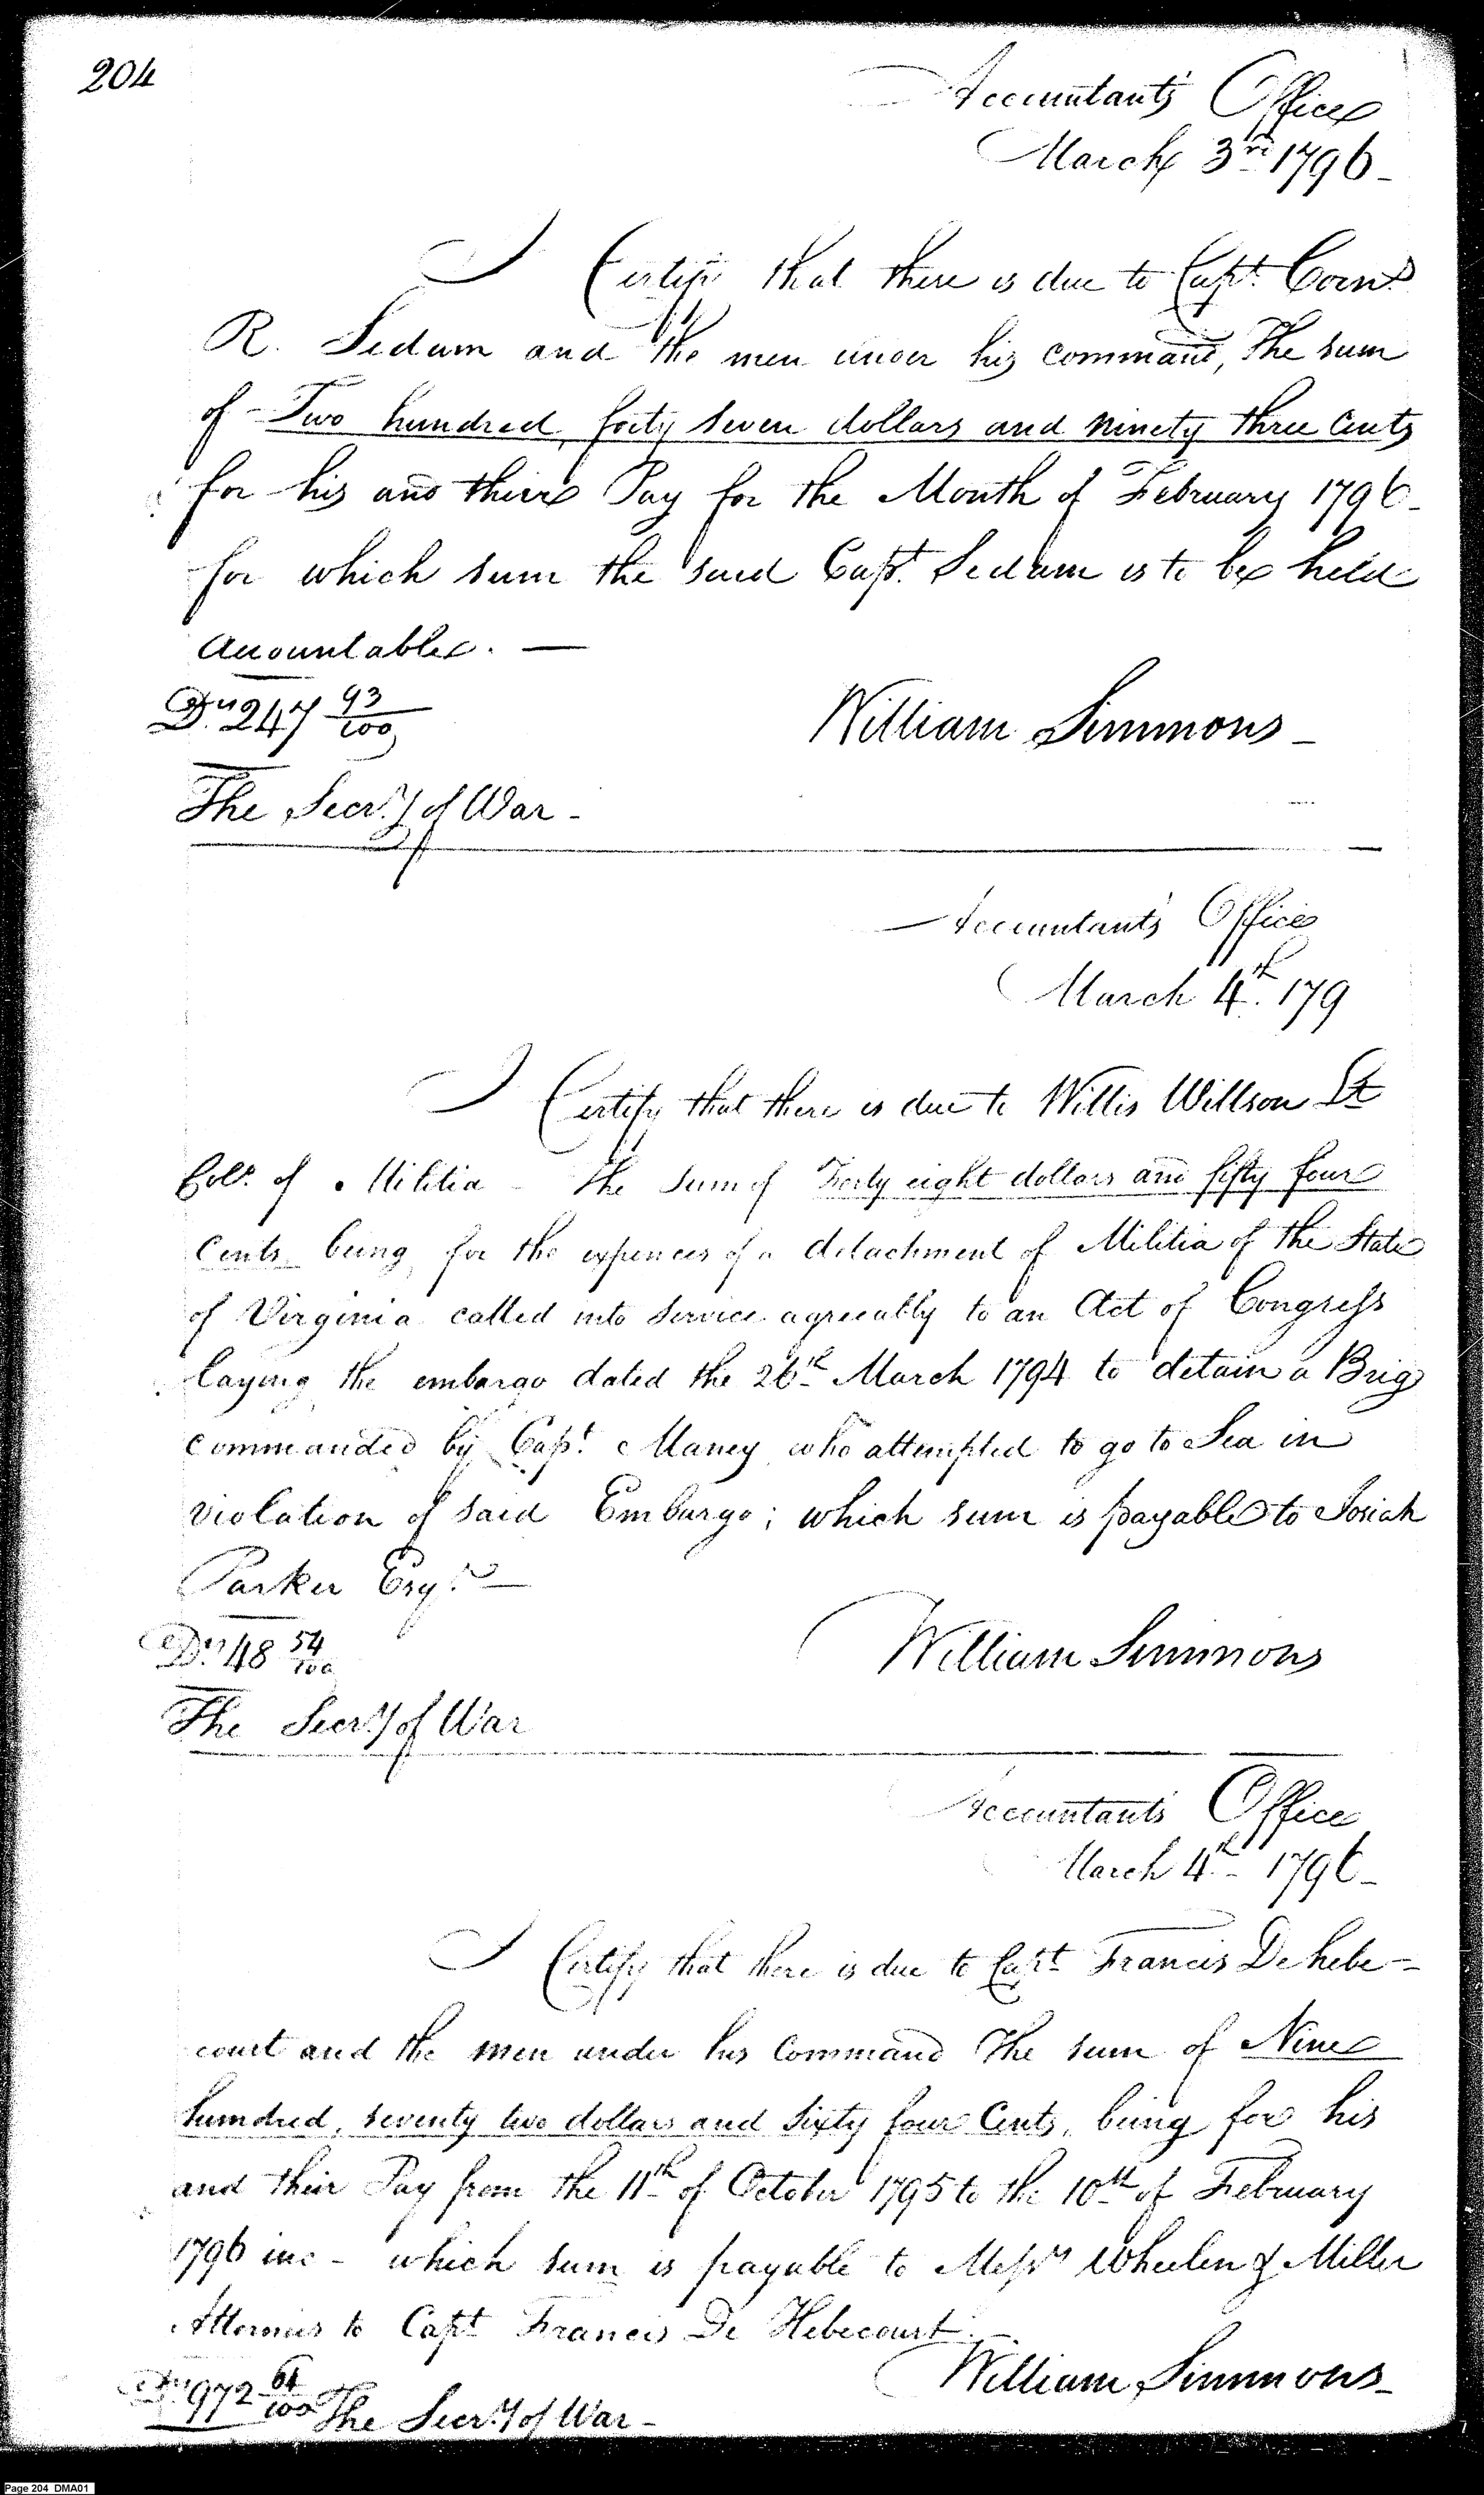 204
Accountant's Office
March 3rd 1796-
I Certify that there is due to Capt. Corn.s
R. Sedam and the men under his command, the sum
of Two hundred, forty seven dollars and ninety three Cents
for his and theire Pay for the Month of February 1796-
for which sum the said Capt. Sedam is to be held
Accountable. —
Drs 247 93/100
William Simmons-
The Secr.y of War-
Accountant's Office
March 4th. 179
I Certify that there is due to Willis Willson Lt
Coll. of Militia - the Sum of Forty eight dollars and fifty four
Cents being for the expences of a detachment of Militia of the State
of Virginia called into Service agreeably to an Act of Congress
laying the embargo dated the 26th March 1794 to detain a Brig
commanded by Capt. Maney who attempted to go to Sea in
violation of said Embargo; which sum is payable to Josiah
Parker Esqr. —
Drs 48 54/100
William Simmons
The Secr.y of War
Accountant's Office
March 4th - 1796-
I Certify that there is due to Capt Francis De hebe=
court and the men under his Command the sum of Nine
hundred, seventy two dollars and Sixty four Cents, being for his
and their Pay from the 11th of October 1795 to the 10th of February
1796 inc - which sum is payable to Messrs Wheelen & Miller
Attornies to Capt Francis De Hebecourt.-
William Simmons-
Drs 972 64/100 The Secr.y of War-
Page 204 DMA01